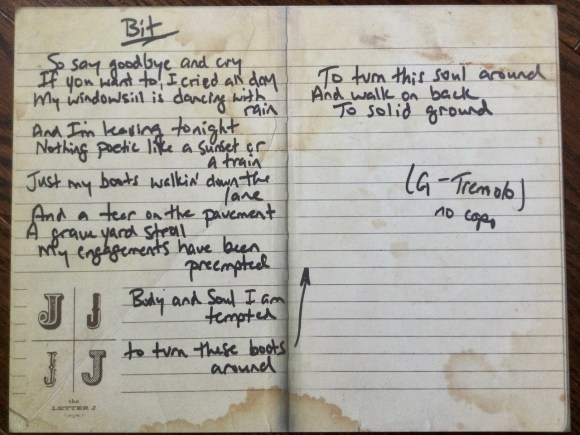 Bit
So say goodbye and cry
If you want to, I cried all day
My windowsill is dancing with
rain
And I'm leaving tonight
Nothing poetic like a sunset or
a train
Just my boots walkin' down the
lane
And a tear on the pavement
A graveyard stroll
My engagements have been
preempted
Body and Soul I am
tempted
to turn these boots
around
J J
J J
the
LETTER J
To turn this soul around
And walk on back
To solid ground
(G-Tremolo)
no capo